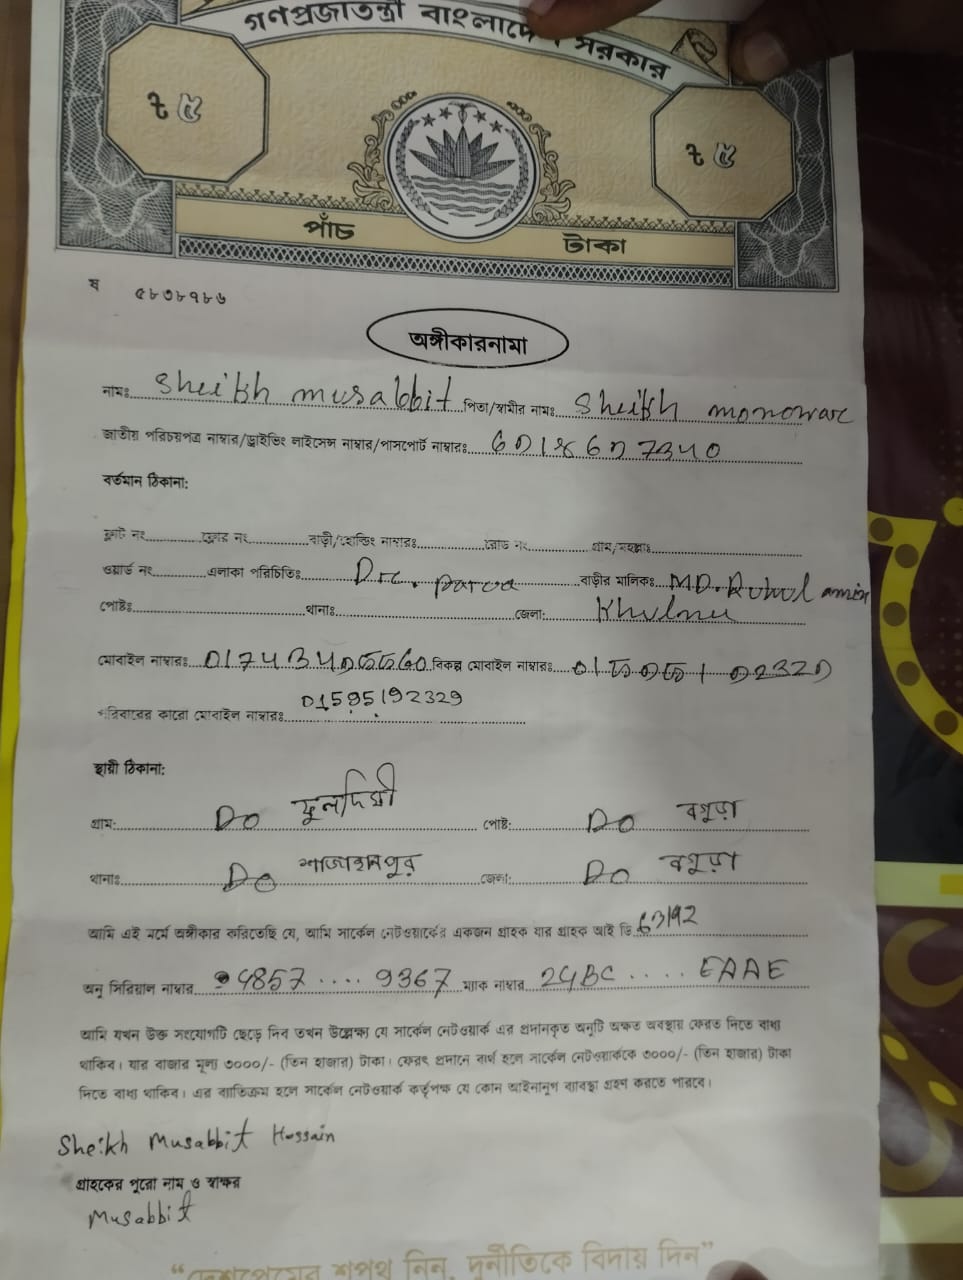 গণপ্রজাতন্ত্রী বাংলাদেশ সরকার
৳ ৫ ৳ ৫
পাঁচ টাকা
ষ ৫৮৩৮৭৮৬
অঙ্গীকারনামা
নামঃ Sheikh musabbit পিতা/স্বামীর নামঃ Sheikh monowar
জাতীয় পরিচয়পত্র নাম্বার/ড্রাইভিং লাইসেন্স নাম্বার/পাসপোর্ট নাম্বারঃ
বর্তমান ঠিকানা:
ফ্লাট নং ফ্লোর নং বাড়ী/হোল্ডিং নাম্বারঃ রোড নং গ্রাম/মহল্লাঃ
ওয়ার্ড নং এলাকা পরিচিতিঃ বাড়ীর মালিকঃ MD. Ruhul amin
পোষ্টঃ থানাঃ জেলা: Khulna
মোবাইল নাম্বারঃ বিকল্প মোবাইল নাম্বারঃ
পরিবারের কারো মোবাইল নাম্বারঃ 01595192329
স্থায়ী ঠিকানা:
গ্রাম: DO ফুলদিঘী পোষ্ট: DO বগুড়া
থানাঃ DO শাজাহানপুর জেলা: DO বগুড়া
আমি এই মর্মে অঙ্গীকার করিতেছি যে, আমি সার্কেল নেটওয়ার্কের একজন গ্রাহক যার গ্রাহক আই ডি 63192
অনু সিরিয়াল নাম্বার 4857 .... 9367 ম্যাক নাম্বার 24BC .... EAAE
আমি যখন উক্ত সংযোগটি ছেড়ে দিব তখন উল্লেক্ষ্য যে সার্কেল নেটওয়ার্ক এর প্রদানকৃত অনুটি অক্ষত অবস্থায় ফেরত দিতে বাধ্য
থাকিব। যার বাজার মূল্য ৩০০০/- (তিন হাজার) টাকা। ফেরৎ প্রদানে ব্যর্থ হলে সার্কেল নেটওয়ার্ককে ৩০০০/- (তিন হাজার) টাকা
দিতে বাধ্য থাকিব। এর ব্যতিক্রম হলে সার্কেল নেটওয়ার্ক কর্তৃপক্ষ যে কোন আইনানুগ ব্যাবস্থা গ্রহণ করতে পারবে।
Sheikh Musabbit Hossain
গ্রাহকের পুরো নাম ও স্বাক্ষর
Musabbit
“দেশপ্রেমের শপথ নিন, দুর্নীতিকে বিদায় দিন”